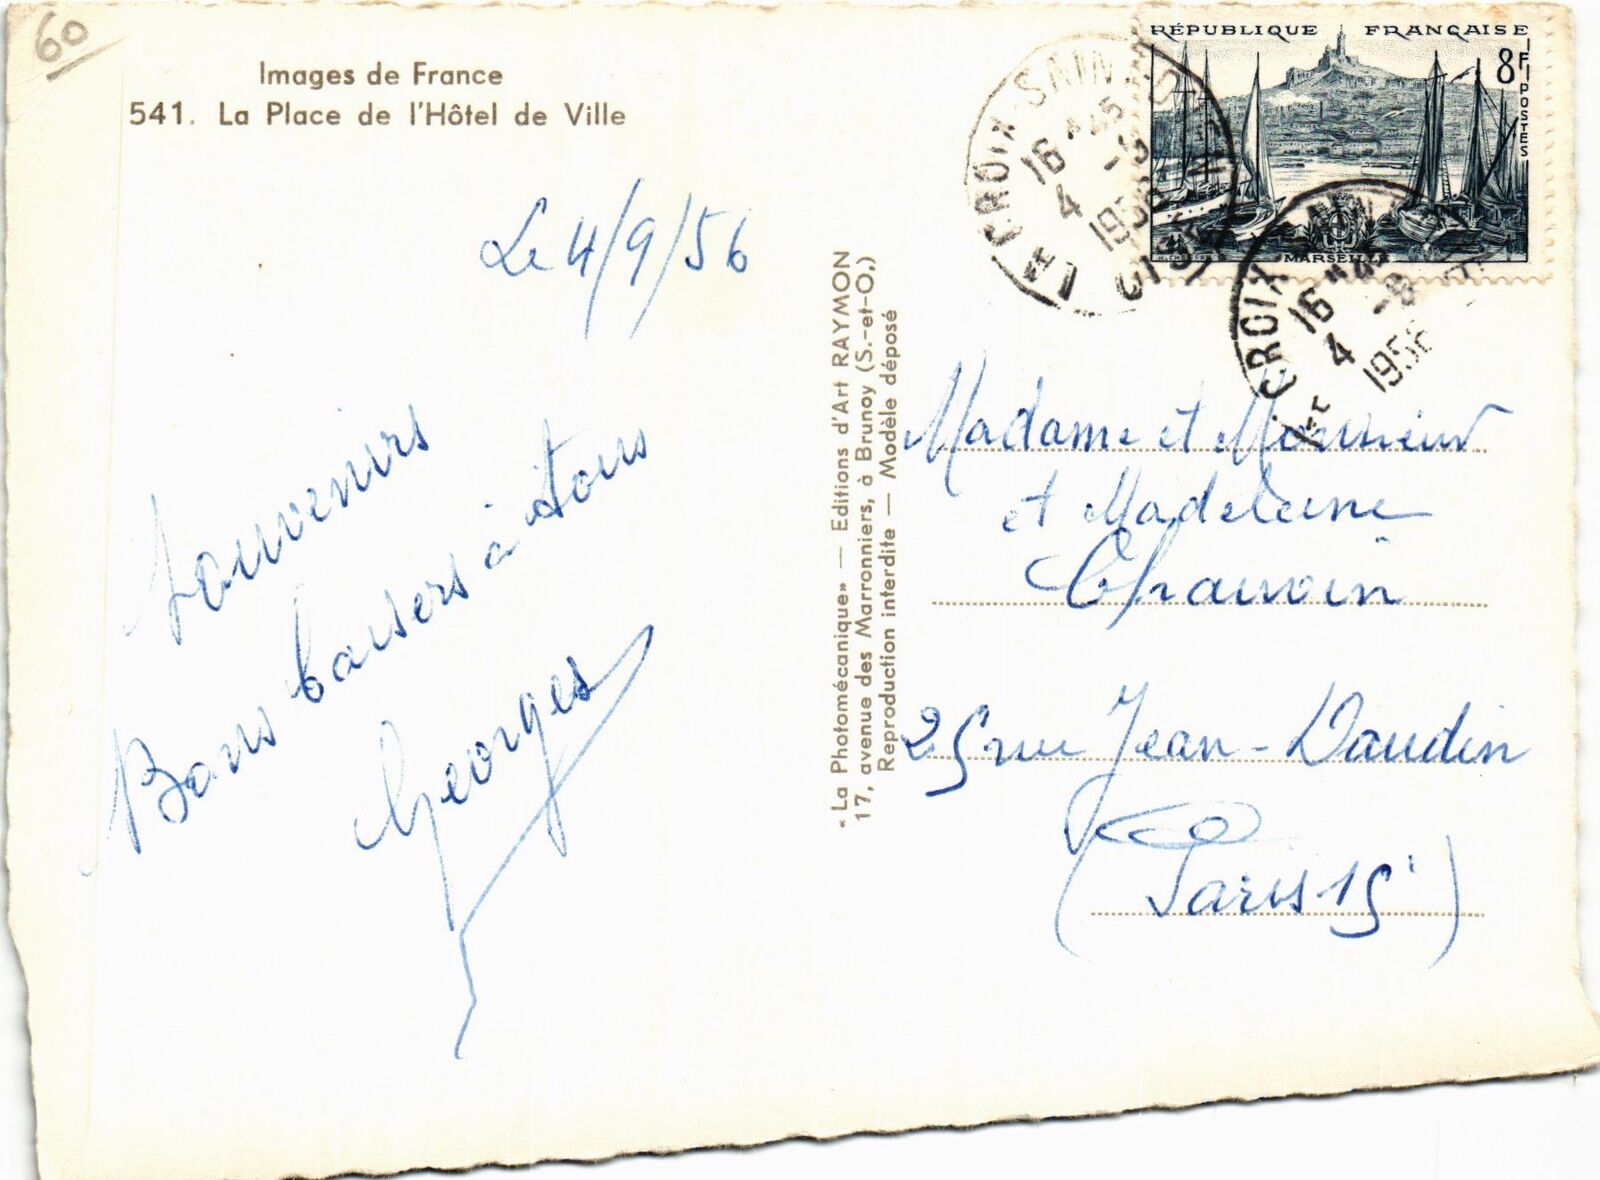 60
Images de France
541. La Place de l'Hôtel de Ville
Le 4/9/56
Souvenirs
Bons baisers à tous
Georges
« La Photomécanique » — Editions d'Art RAYMON
17, avenue des Marronniers, à Brunoy (S.-et-O.)
Reproduction interdite — Modèle déposé
RÉPUBLIQUE FRANÇAISE
8F
POSTES
MARSEILLE
LA CROIX SAINT
16 H 45
4 -9
1956
CROIX
16 H 45
4 -9
1956
Madame et Monsieur
et Madeleine
Chauvin
25 rue Jean-Daudin
(Paris 15)